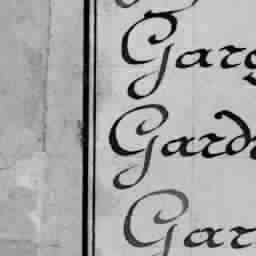 Garg
Gardn
Gar